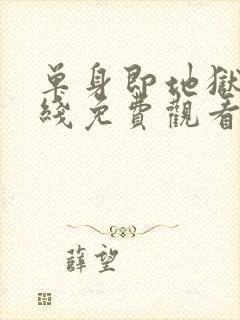 單身即地獄
綫免費觀看
薛望